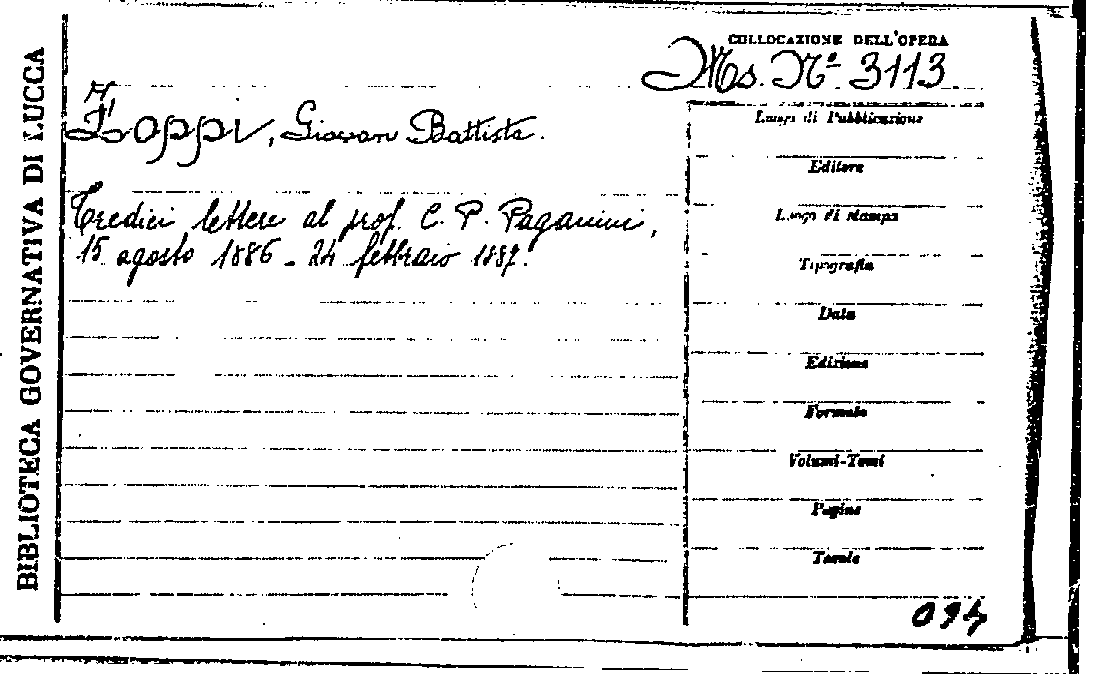 BIBLIOTECA GOVERNATIVA DI LUCCA
COLLOCAZIONE DELL'OPERA
Ms. Nº 3113.
Zoppi, Giovan Battista.
Tredici lettere al prof. C. P. Paganini,
15 agosto 1886 - 24 febbraio 1887.
Luogo di Pubblicazione
Editore
Luogo di stampa
Tipografia
Data
Edizione
Formato
Volumi-Tomi
Pagine
Tavole